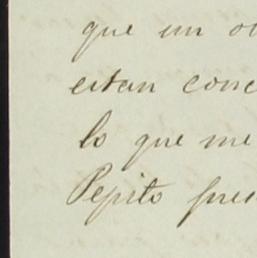 que un o
estan conc
lo que me
Pepito pres